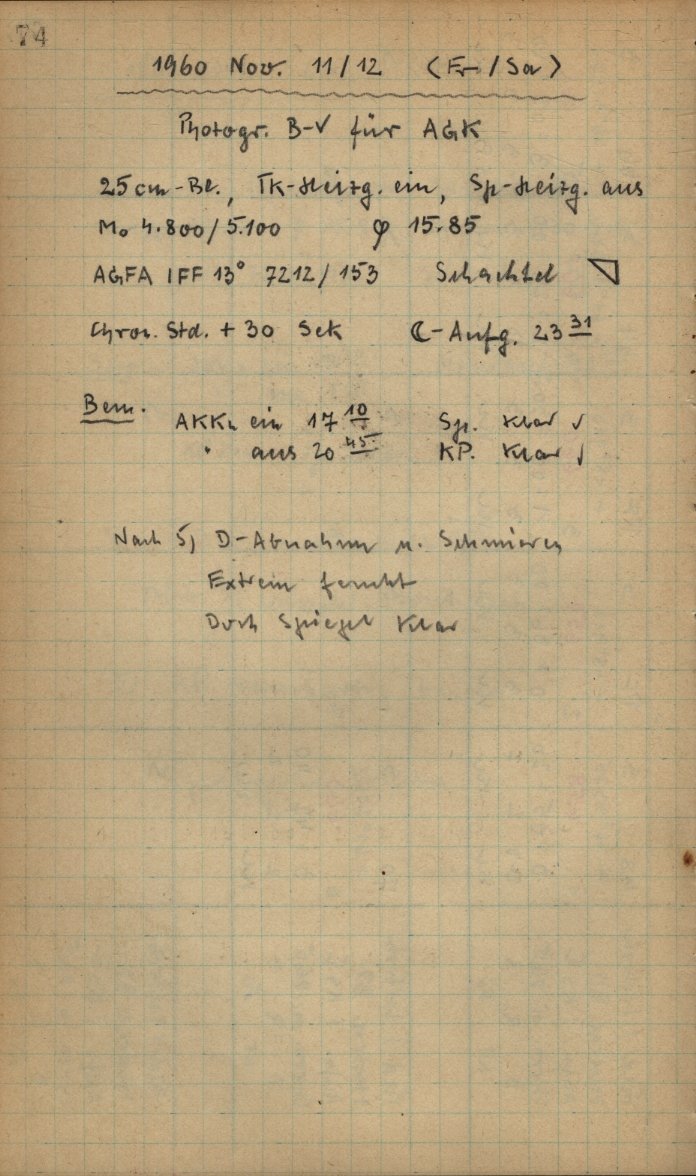 74
1960 Nov. 11/12 (Fr/Sa)
Photogr. B-V für AGK
25cm-Bl., TK-Heizg. ein, Sp-Heizg. aus
Mo 4.800/5.100 φ 15.85
AGFA IFF 13° 7212/153 Schachtel
Chron. Std. + 30 Sek ☾-Aufg. 23 31
Bem. AKKu ein 17 10 Sp. klar √
" aus 20 45 KP. klar √
Nach 5, D-Abnahme u. Schmieren
Extrem feucht
Doch Spiegel klar